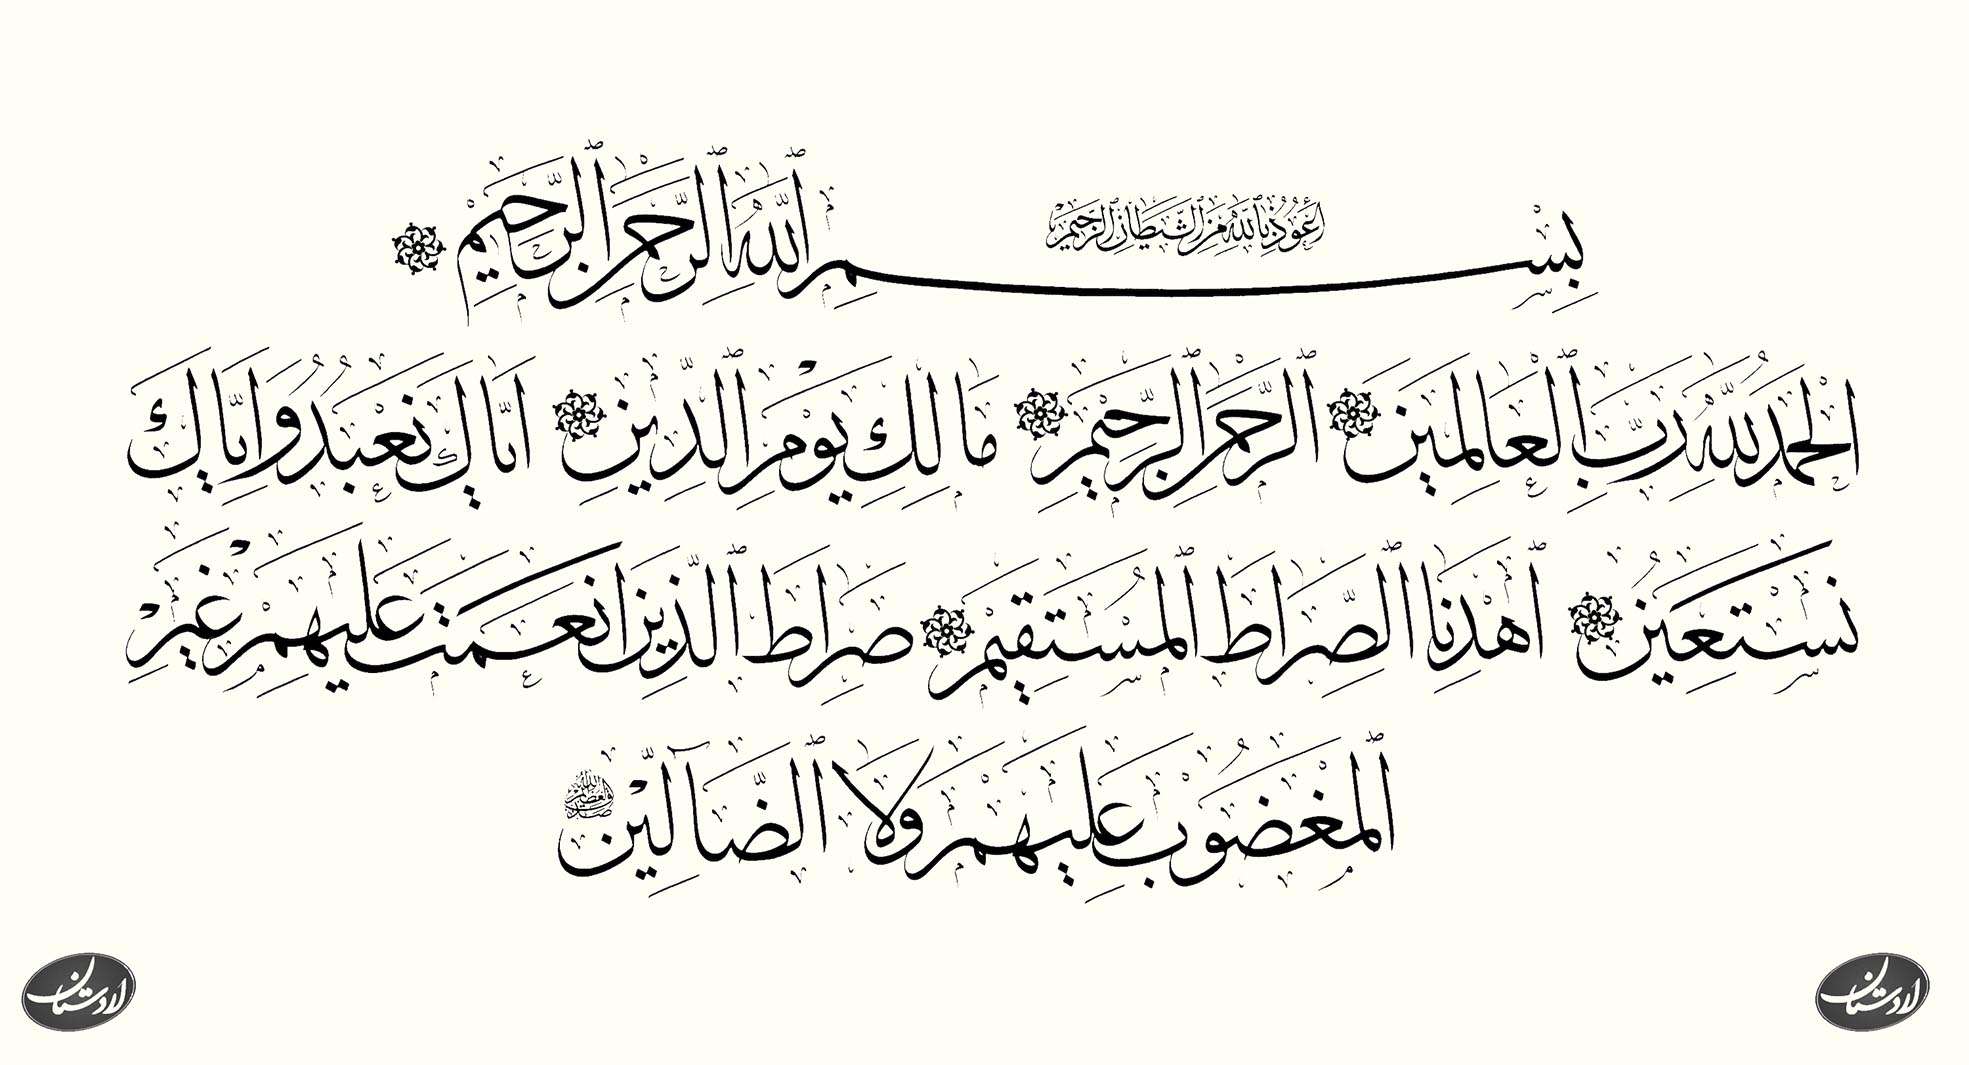 أَعُوذُ بِاللَّهِ مِنَ الشَّيْطَانِ الرَّجِيمِ
بِسْمِ ٱللَّهِ ٱلرَّحْمَنِ ٱلرَّحِيمِ
الْحَمْدُ لِلَّهِ رَبِّ ٱلْعَالَمِينَ ٱلرَّحْمَنِ ٱلرَّحِيمِ مَالِكِ يَوْمِ ٱلدِّينِ اِيَّاكَ نَعْبُدُ وَاِيَّاكَ
نَسْتَعِينُ ٱهْدِنَا ٱلصِّرَاطَ ٱلْمُسْتَقِيمَ صِرَاطَ ٱلَّذِينَ اَنْعَمْتَ عَلَيْهِمْ غَيْرِ
ٱلْمَغْضُوبِ عَلَيْهِمْ وَلَا ٱلضَّآلِّينَ
صدق الله العظيم
لادستان
لادستان